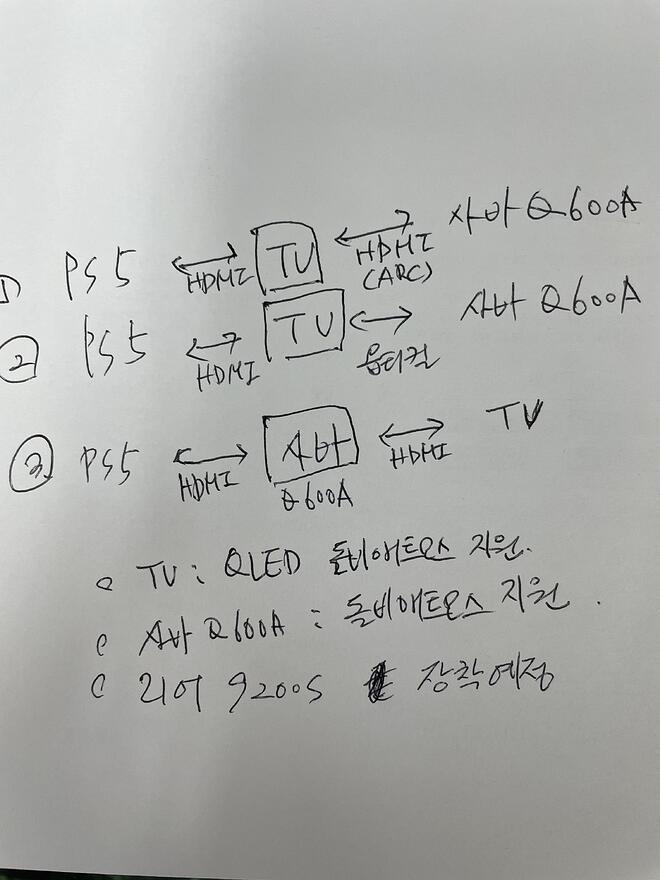 ① PS5 HDMI TV HDMI (ARC) 사바 Q600A
② PS5 HDMI TV 옵티컬 사바 Q600A
③ PS5 HDMI 사바 Q600A HDMI TV
TV : QLED 돌비애트모스 지원.
사바 Q600A : 돌비애트모스 지원.
리어 9200S 장착예정